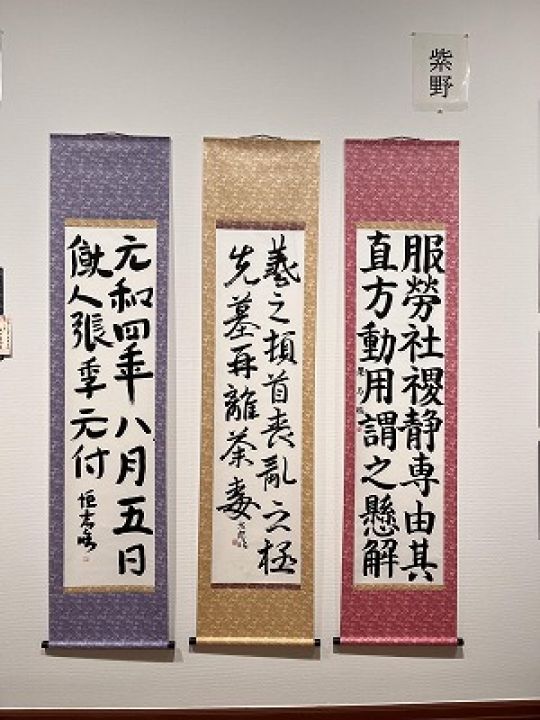 紫野
服勞社稷静専由其
直方動用謂之懸解
羲之頓首喪亂之極
先墓再離荼毒
元和四年八月五日
僦人張季元付